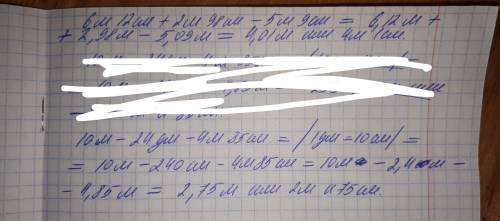 6м 12см + 2м 98см - 5м 9см = 6,12м +
+ 2,98м - 5,09м = 4,01м или 4м 1см.
10м - 24дм - 4м 85см = /1дм = 10см/ =
= 10м - 240см - 4м 85см = 10м - 2,4м -
- 4,85м = 2,75м или 2м и 75см.